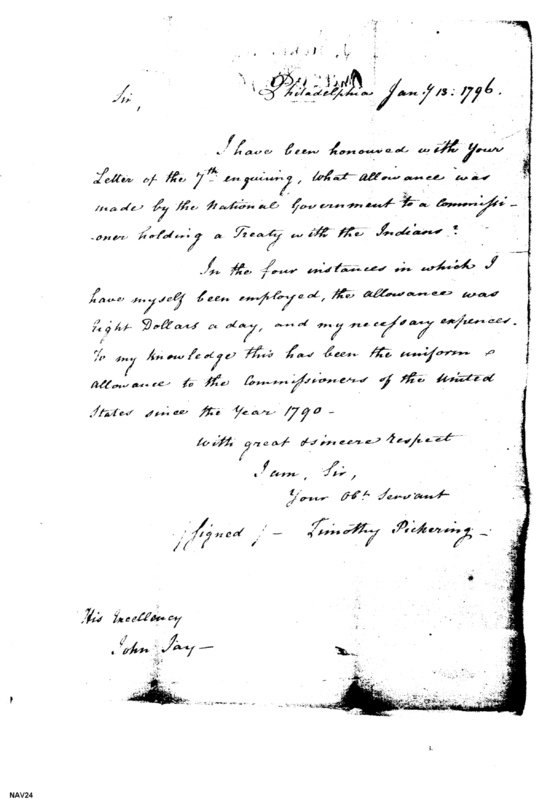 Philadelphia Jan:y 13: 1796.
Sir,
I have been honoured with your
Letter of the 7th enquiring, what allowance was
made by the National Government to a Commissi-
-oner holding a Treaty with the Indians?
In the four instances in which I
have myself been employed, the allowance was
Eight Dollars a day, and my necessary expences.
To my knowledge this has been the uniform
allowance to the Commissioners of the United
States since the Year 1790 -
With great & sincere respect
I am, Sir,
Your Obt Servant
/Signed/ - Timothy Pickering -
His Excellency
John Jay -
NAV24